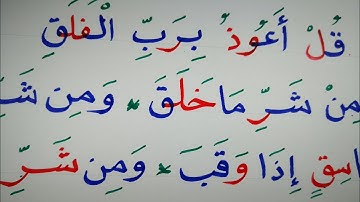 قُلْ أَعُوذُ بِرَبِّ الْفَلَقِ
مِنْ شَرِّ مَا خَلَقَ * وَمِن شَـ
اسِقٍ إِذَا وَقَبَ * وَمِن شَرِّ